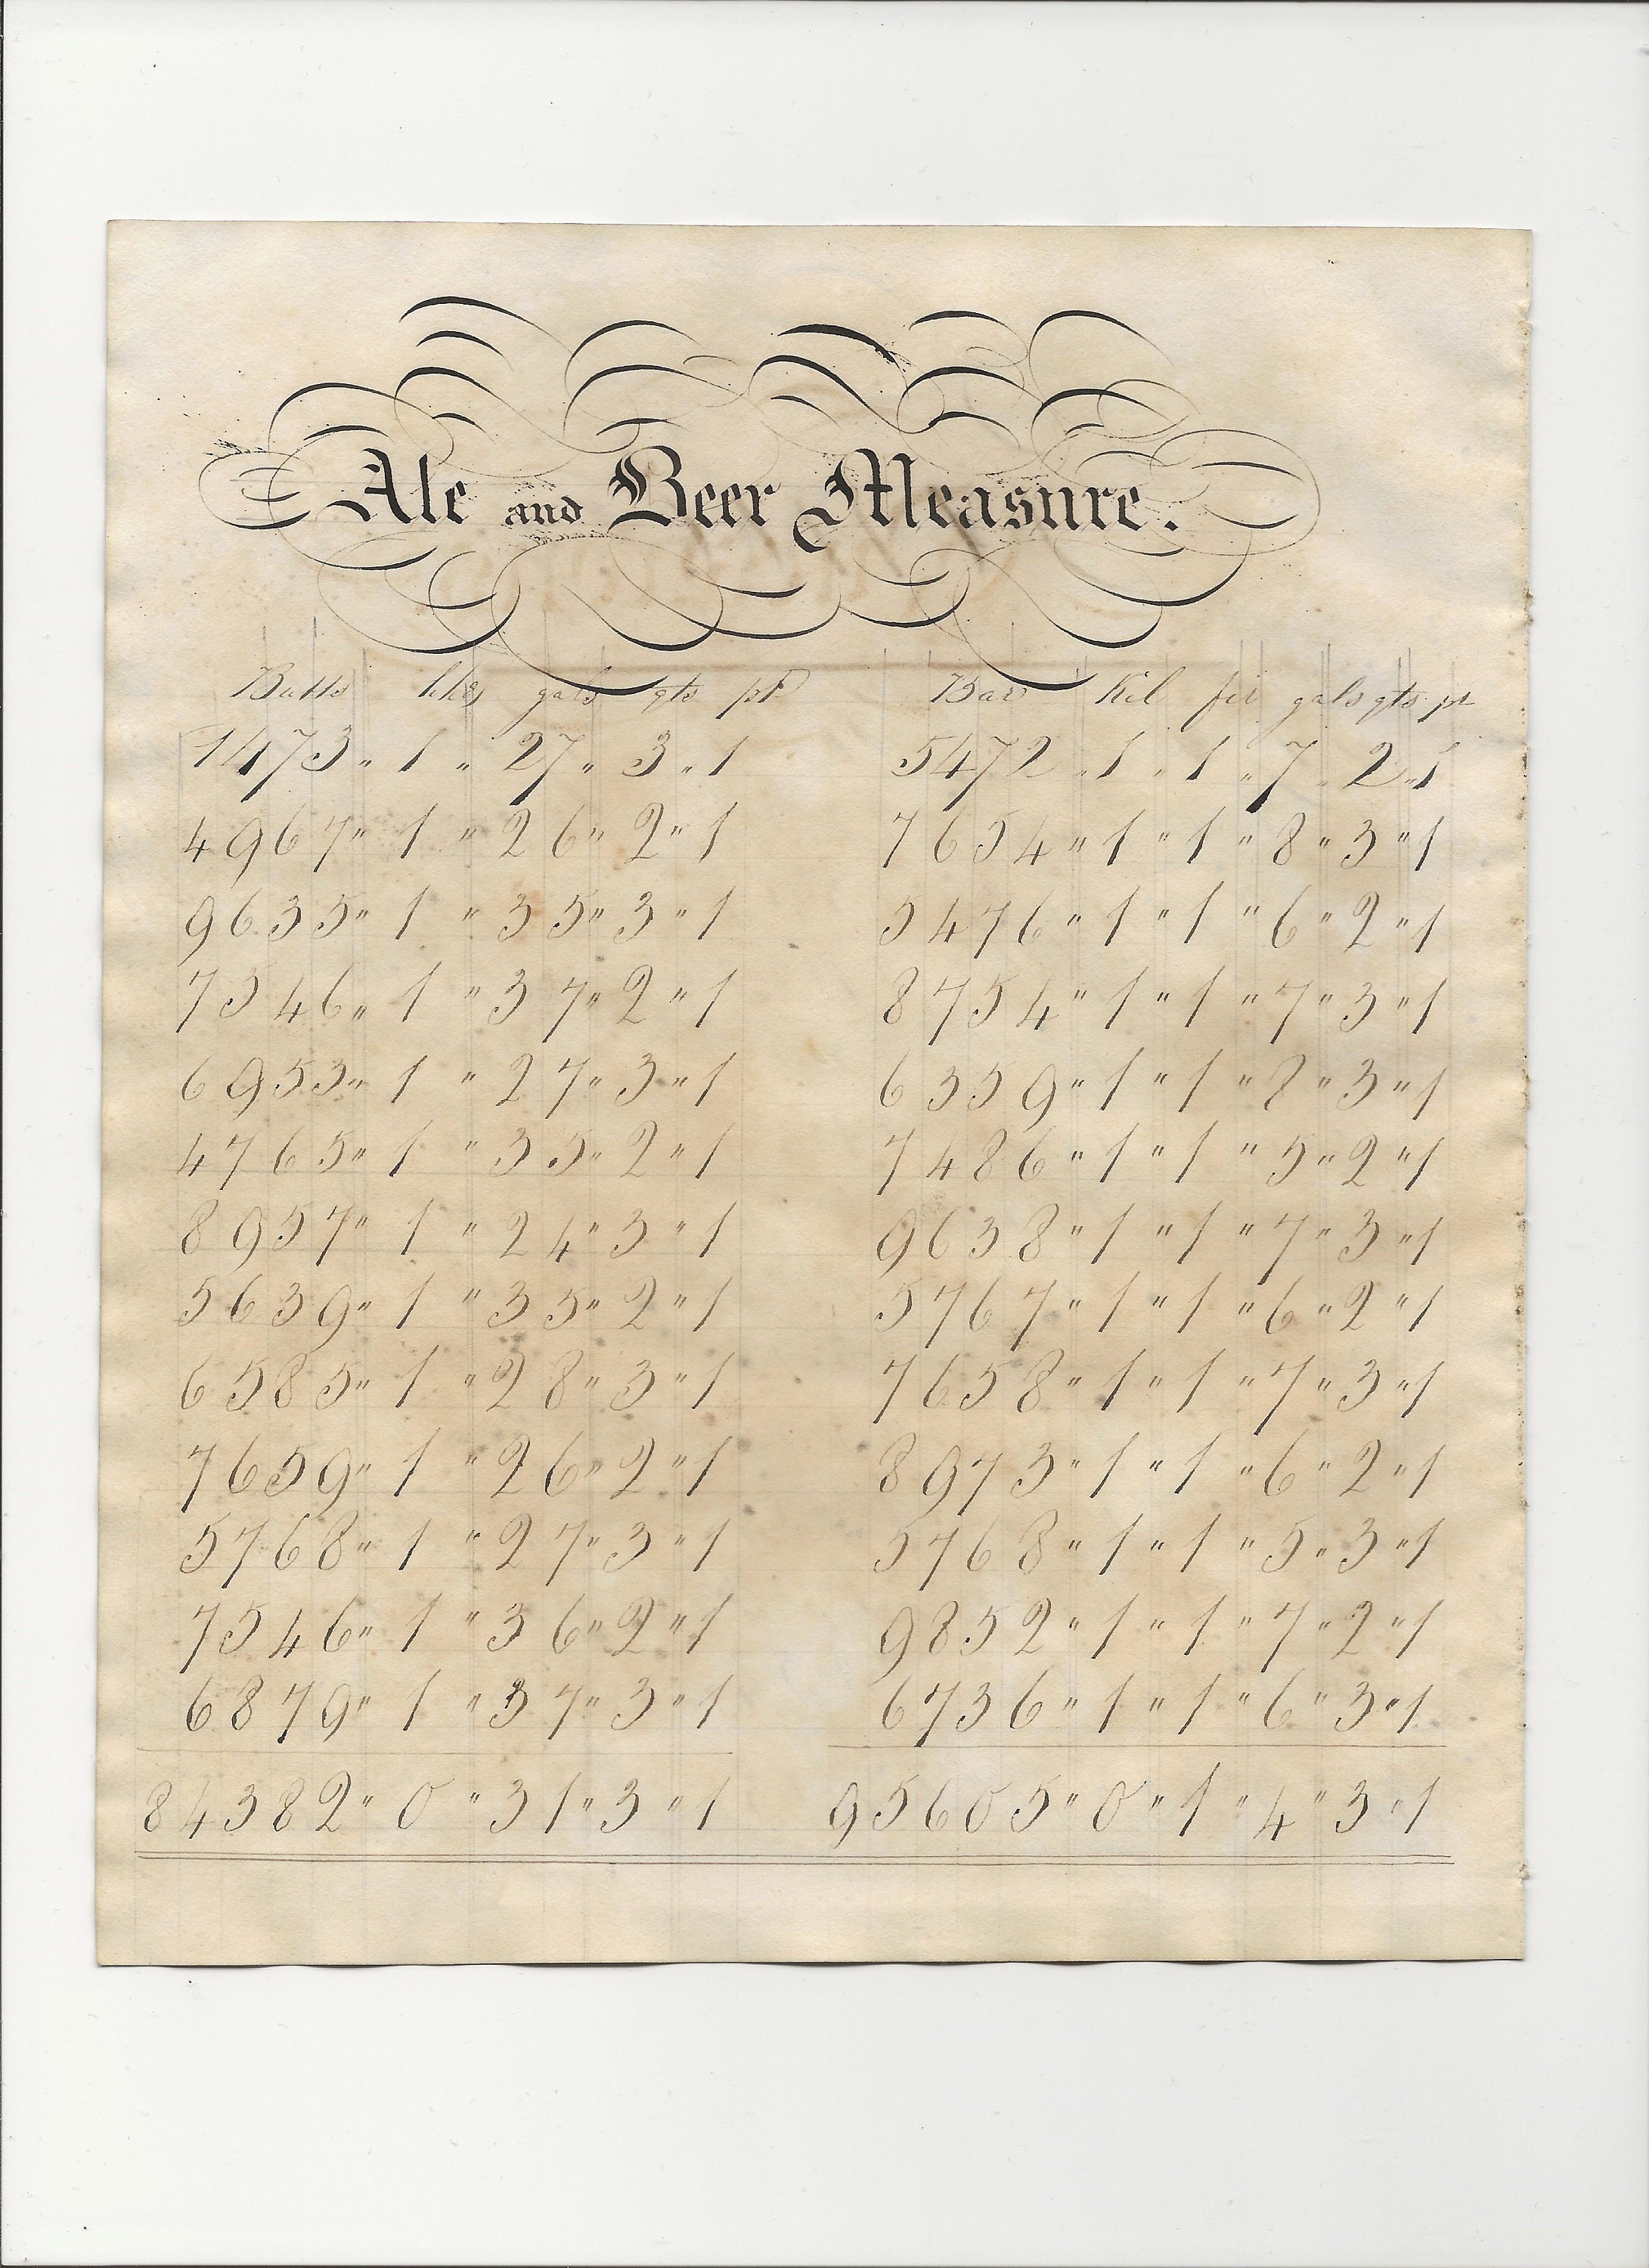 Ale and Beer Measure.
Butts hhds gals qts pt Bar Kil fir gals qts pt
1473 " 1 " 27 " 3 " 1 5472 " 1 " 1 " 7 " 2 " 1
4967 " 1 " 26 " 2 " 1 7654 " 1 " 1 " 8 " 3 " 1
9635 " 1 " 35 " 3 " 1 5476 " 1 " 1 " 6 " 2 " 1
7546 " 1 " 37 " 2 " 1 8754 " 1 " 1 " 7 " 3 " 1
6953 " 1 " 27 " 3 " 1 6359 " 1 " 1 " 8 " 3 " 1
4765 " 1 " 35 " 2 " 1 7486 " 1 " 1 " 5 " 2 " 1
8957 " 1 " 24 " 3 " 1 9638 " 1 " 1 " 7 " 3 " 1
5639 " 1 " 35 " 2 " 1 5767 " 1 " 1 " 6 " 2 " 1
6585 " 1 " 28 " 3 " 1 7658 " 1 " 1 " 7 " 3 " 1
7659 " 1 " 26 " 2 " 1 8973 " 1 " 1 " 6 " 2 " 1
5768 " 1 " 27 " 3 " 1 5768 " 1 " 1 " 5 " 3 " 1
7546 " 1 " 36 " 2 " 1 9852 " 1 " 1 " 7 " 2 " 1
6879 " 1 " 37 " 3 " 1 6736 " 1 " 1 " 6 " 3 " 1
84382 " 0 " 31 " 3 " 1 95605 " 0 " 1 " 4 " 3 " 1